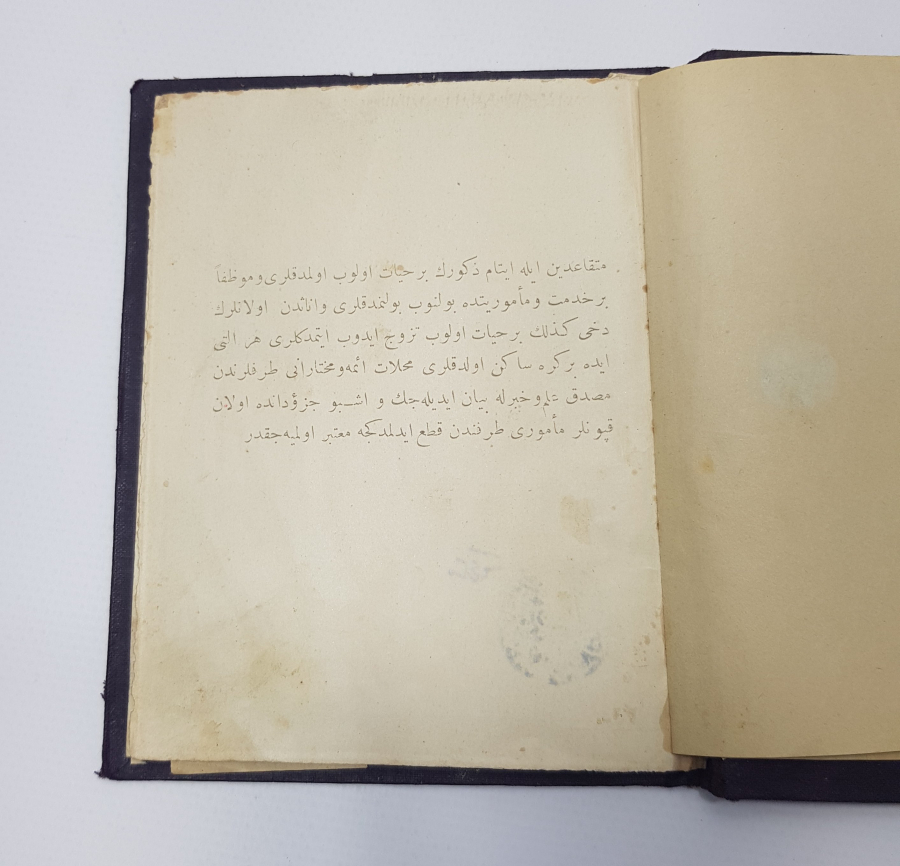 متقاعدين ايله ايتام ذكورك بر حيات اولوب اولمدقلرى وموظفاً
بر خدمت ومأموريتده بولنوب بولنمدقلرى واناثدن اولانلرك
دخى كذلك بر حيات اولوب تزوج ايدوب ايتمدكلرى هر التى
ايده بر كره ساكن اولدقلرى محلات ائمه ومختارانى طرفلرندن
مصدق علم وخبرله بيان ايديله جك و اشبو جزؤدانده اولان
قپونلر مأمورى طرفندن قطع ايدلمدكجه معتبر اولميه جقدر